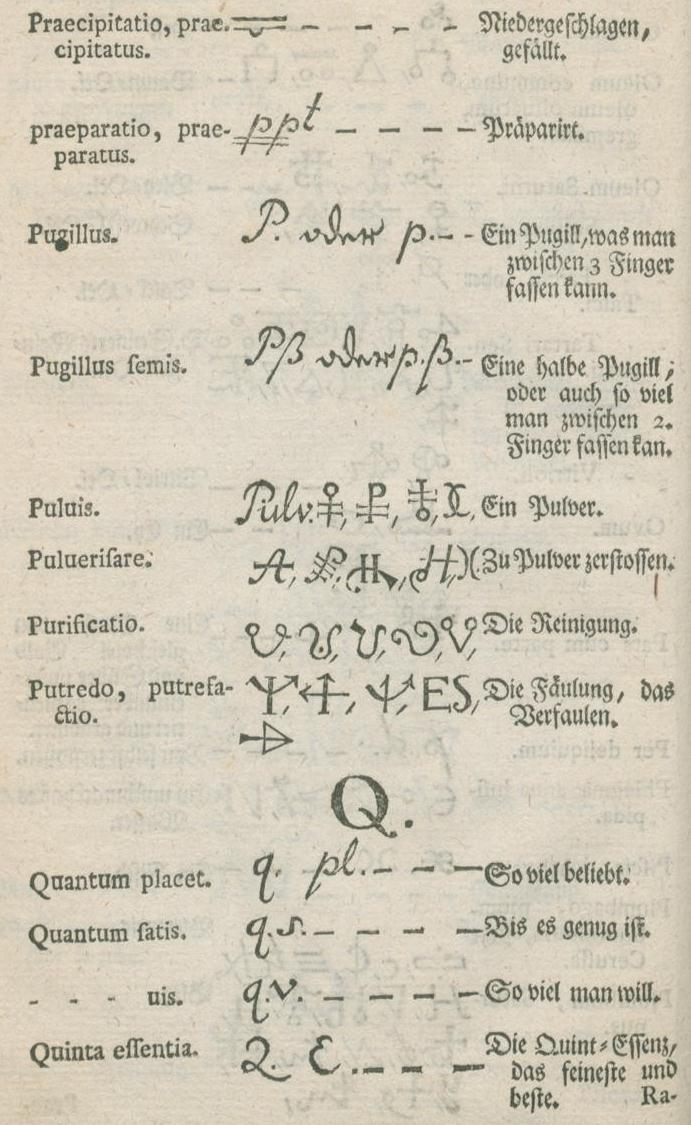 Praecipitatio, prae- – – – – Niedergeſchlagen,
cipitatus. gefällt.
praeparatio, prae- ppt – – – – Präparirt.
paratus.
Pugillus. P. oder p. – – Ein Pugill, was man
zwiſchen 3 Finger
faſſen kann.
Pugillus ſemis. Pß oder p.ß. – Eine halbe Pugill,
oder auch ſo viel
man zwiſchen 2.
Finger faſſen kan.
Puluis. Pulv. Ein Pulver.
Pulueriſare. Zu Pulver zerſtoſſen.
Purificatio. Die Reinigung.
Putredo, putrefa- Die Fäulung, das
ctio. Verfaulen.
Q.
Quantum placet. q. pl. – – – So viel beliebt.
Quantum ſatis. q.s. – – – – Bis es genug iſt.
- - - uis. q.v. – – – – So viel man will.
Quinta eſſentia. Q. E. – – – Die Quint-Eſſenz,
das feineſte und
beſte. Ra-